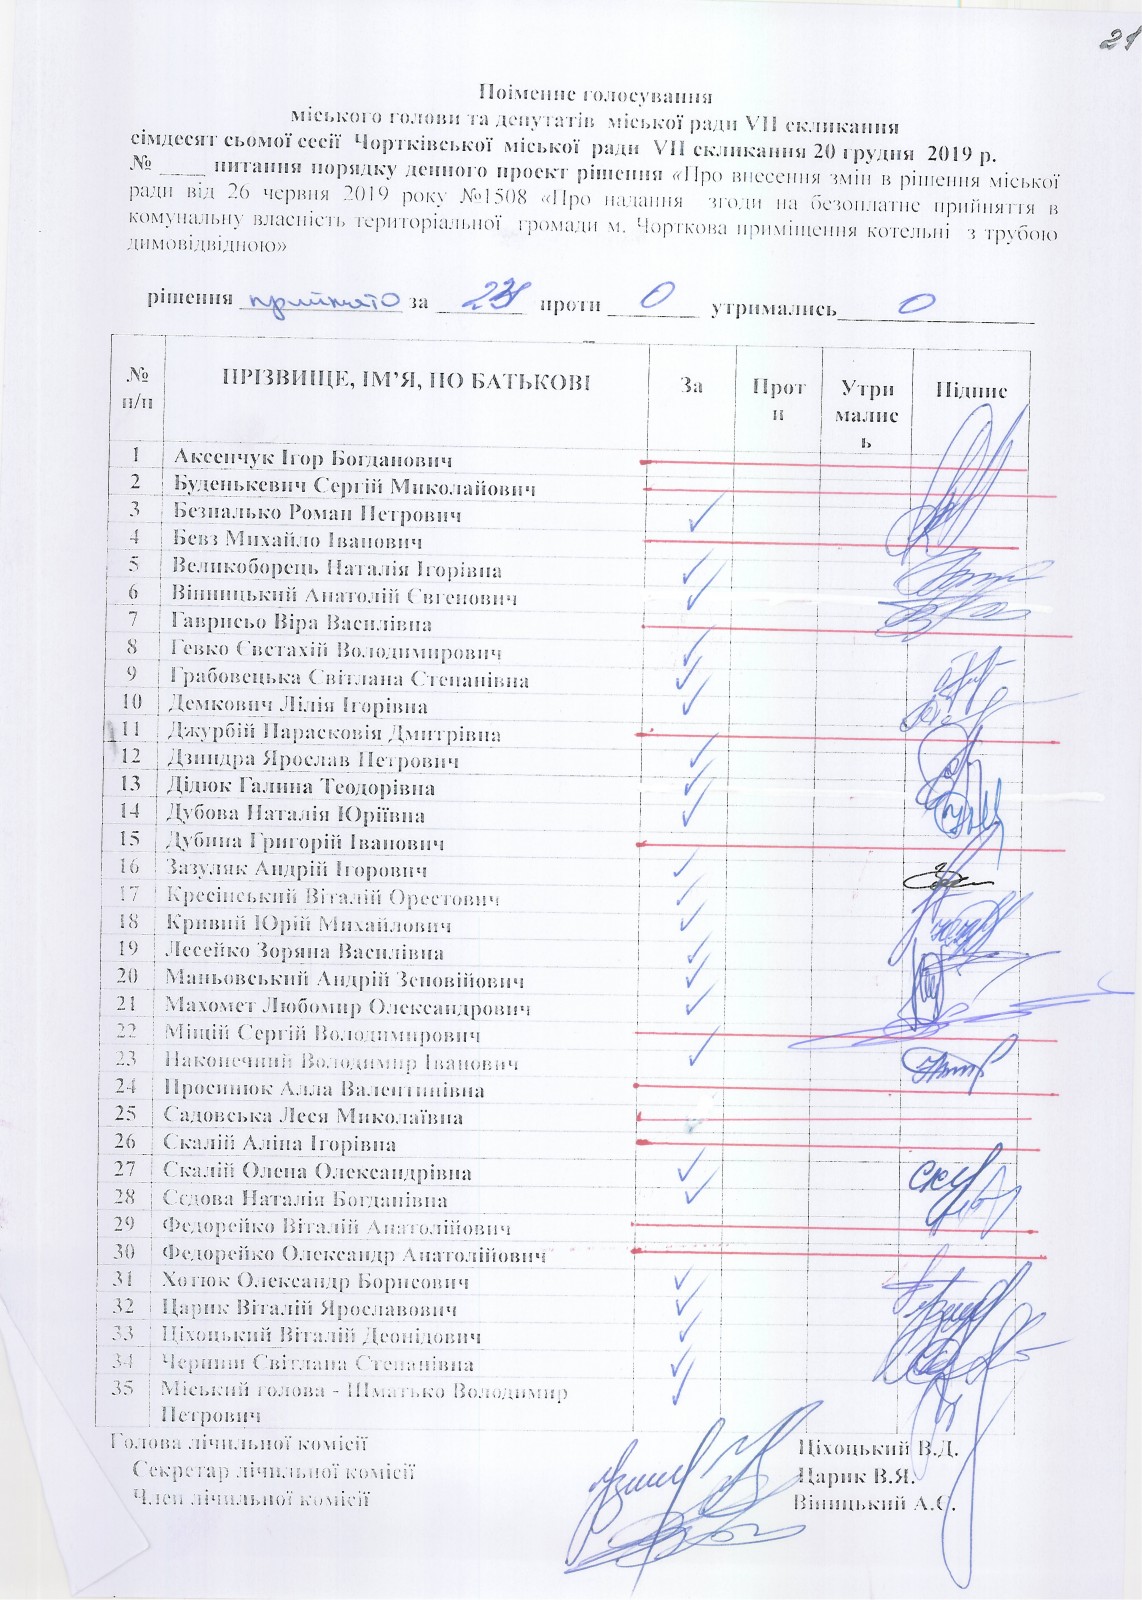 21
Поіменне голосування
міського голови та депутатів міської ради VII скликання
сімдесят сьомої сесії Чортківської міської ради VII скликання 20 грудня 2019 р.
№ ____ питання порядку денного проект рішення «Про внесення змін в рішення міської
ради від 26 червня 2019 року №1508 «Про надання згоди на безоплатне прийняття в
комунальну власність територіальної громади м. Чорткова приміщення котельні з трубою
димовідвідною»
рішення прийнято за проти 0 утримались 0
№ п/п ПРІЗВИЩЕ, ІМ’Я, ПО БАТЬКОВІ За Проти Утримались Підпис
1 Аксенчук Ігор Богданович
2 Буденькевич Сергій Миколайович
3 Безпалько Роман Петрович
4 Бевз Михайло Іванович
5 Великоборець Наталія Ігорівна
6 Вінницький Анатолій Євгенович
7 Гаврисьо Віра Василівна
8 Гевко Євстахій Володимирович
9 Грабовецька Світлана Степанівна
10 Демкович Лілія Ігорівна
11 Джурбій Парасковія Дмитрівна
12 Дзиндра Ярослав Петрович
13 Дідюк Галина Теодорівна
14 Дубова Наталія Юріївна
15 Дубина Григорій Іванович
16 Зазуляк Андрій Ігорович
17 Кресінський Віталій Орестович
18 Кривий Юрій Михайлович
19 Лесейко Зоряна Василівна
20 Маньовський Андрій Зеновійович
21 Махомет Любомир Олександрович
22 Міщій Сергій Володимирович
23 Наконечний Володимир Іванович
24 Просинюк Алла Валентинівна
25 Садовська Леся Миколаївна
26 Скалій Аліна Ігорівна
27 Скалій Олена Олександрівна
28 Сєдова Наталія Богданівна
29 Федорейко Віталій Анатолійович
30 Федорейко Олександр Анатолійович
31 Хотюк Олександр Борисович
32 Царик Віталій Ярославович
33 Ціхоцький Віталій Деонідович
34 Чернин Світлана Степанівна
35 Міський голова - Шматько Володимир
Петрович
Голова лічильної комісії Ціхоцький В.Д.
Секретар лічильної комісії Царик В.Я.
Член лічильної комісії Вінницький А.Є.